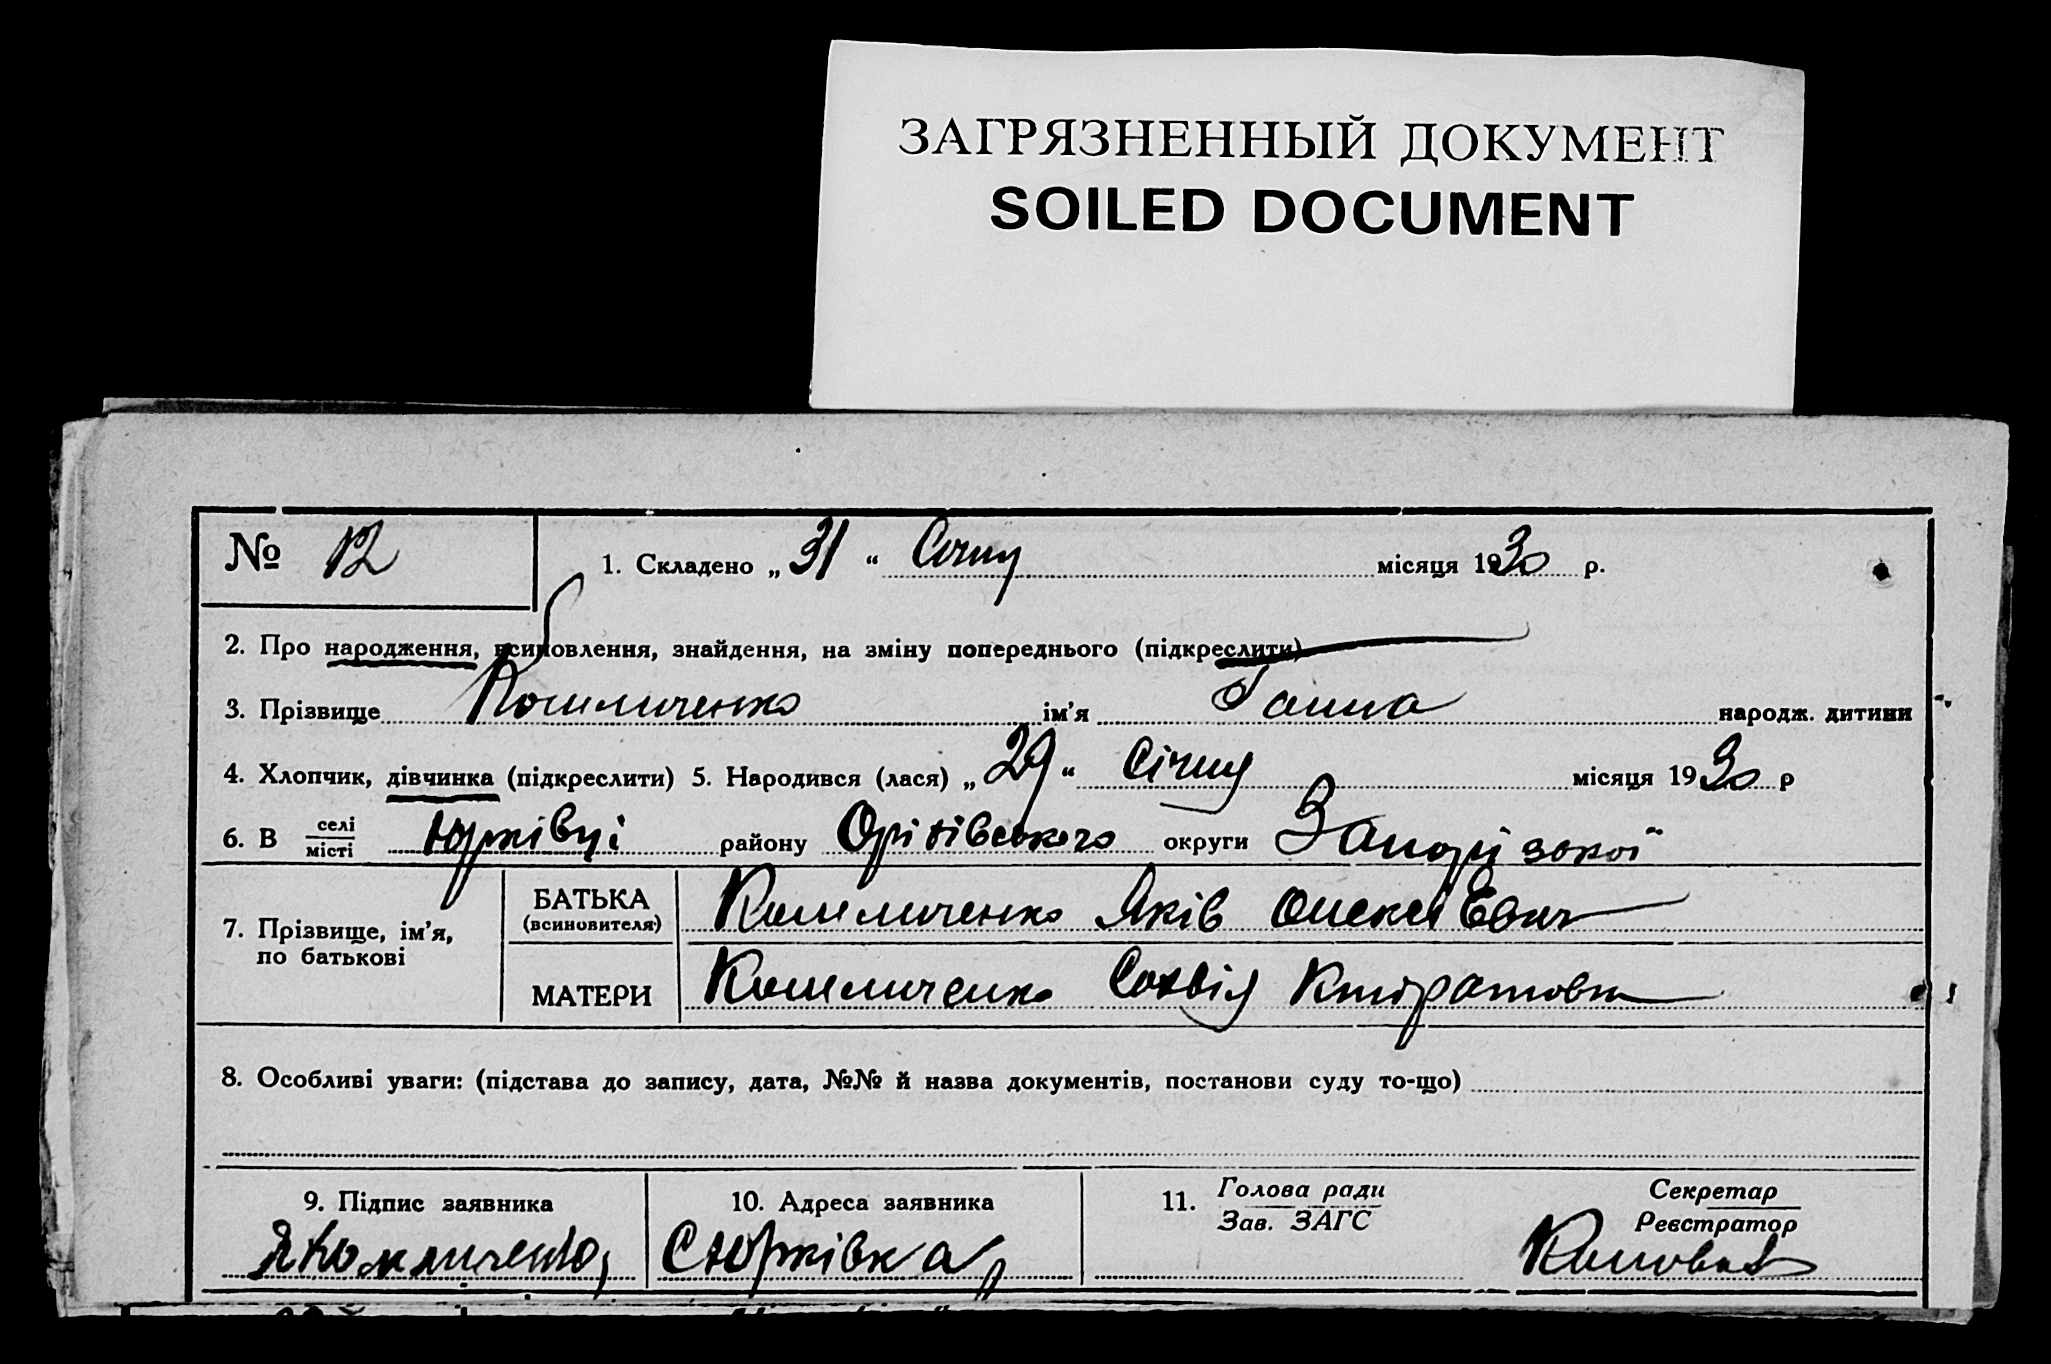 ЗАГРЯЗНЕННЫЙ ДОКУМЕНТ
SOILED DOCUMENT
№ 12
1. Складено „31“ Січня місяця 1930 р.
2. Про народження, всиновлення, знайдення, на зміну попереднього (підкреслити)
3. Прізвище ім'я Ганна народж. дитини
4. Хлопчик, дівчинка (підкреслити) 5. Народився (лася) „29“ Січня місяця 1930 р
6. В селі місті Юрківці району Оріхівського округи Запорізької
7. Прізвище, ім'я, по батькові
БАТЬКА (всиновителя) Яків Олексієвич
МАТЕРИ Софія
8. Особливі уваги: (підстава до запису, дата, №№ й назва документів, постанови суду то-що)
9. Підпис заявника
10. Адреса заявника
с Юрківка
11. Голова ради
Зав. ЗАГС
Секретар
Реєстратор